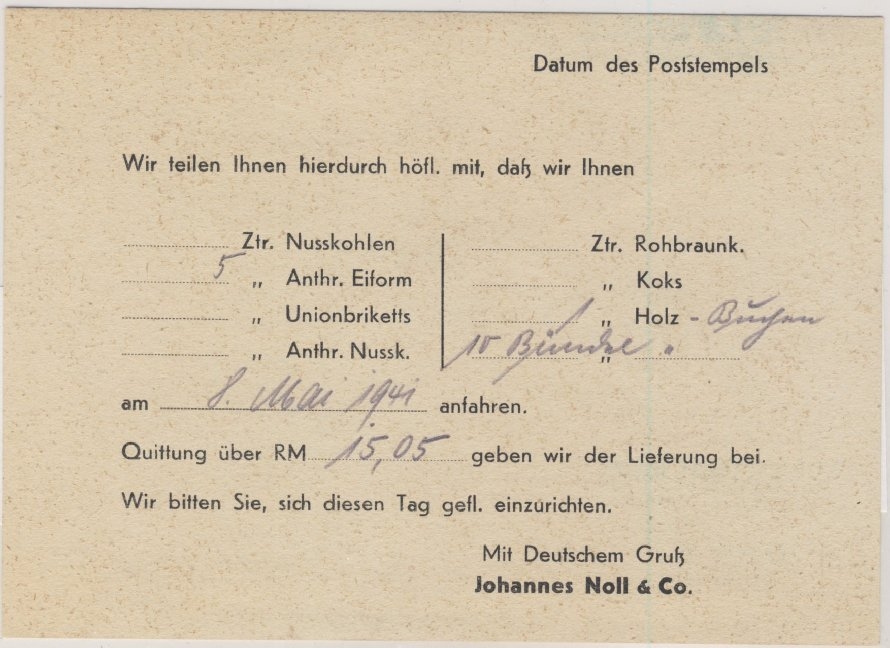 Datum des Poststempels
Wir teilen Ihnen hierdurch höfl. mit, daß wir Ihnen
Ztr. Nusskohlen
5 „ Anthr. Eiform
„ Unionbriketts
„ Anthr. Nussk.
Ztr. Rohbraunk.
„ Koks
1 „ Holz - Buchen
10 Bündel „ "
am 8. Mai 1941 anfahren.
Quittung über RM 15,05 geben wir der Lieferung bei.
Wir bitten Sie, sich diesen Tag gefl. einzurichten.
Mit Deutschem Gruß
Johannes Noll & Co.